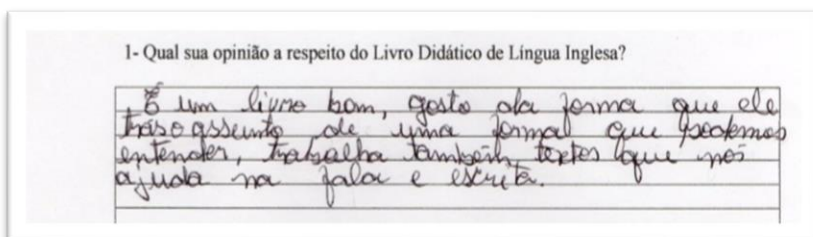 1- Qual sua opinião a respeito do Livro Didático de Língua Inglesa?
É um livro bom, gosto da forma que ele
traso assunto de uma forma que podemos
entender, trabalha também textos que nos
ajuda na fala e escrita.